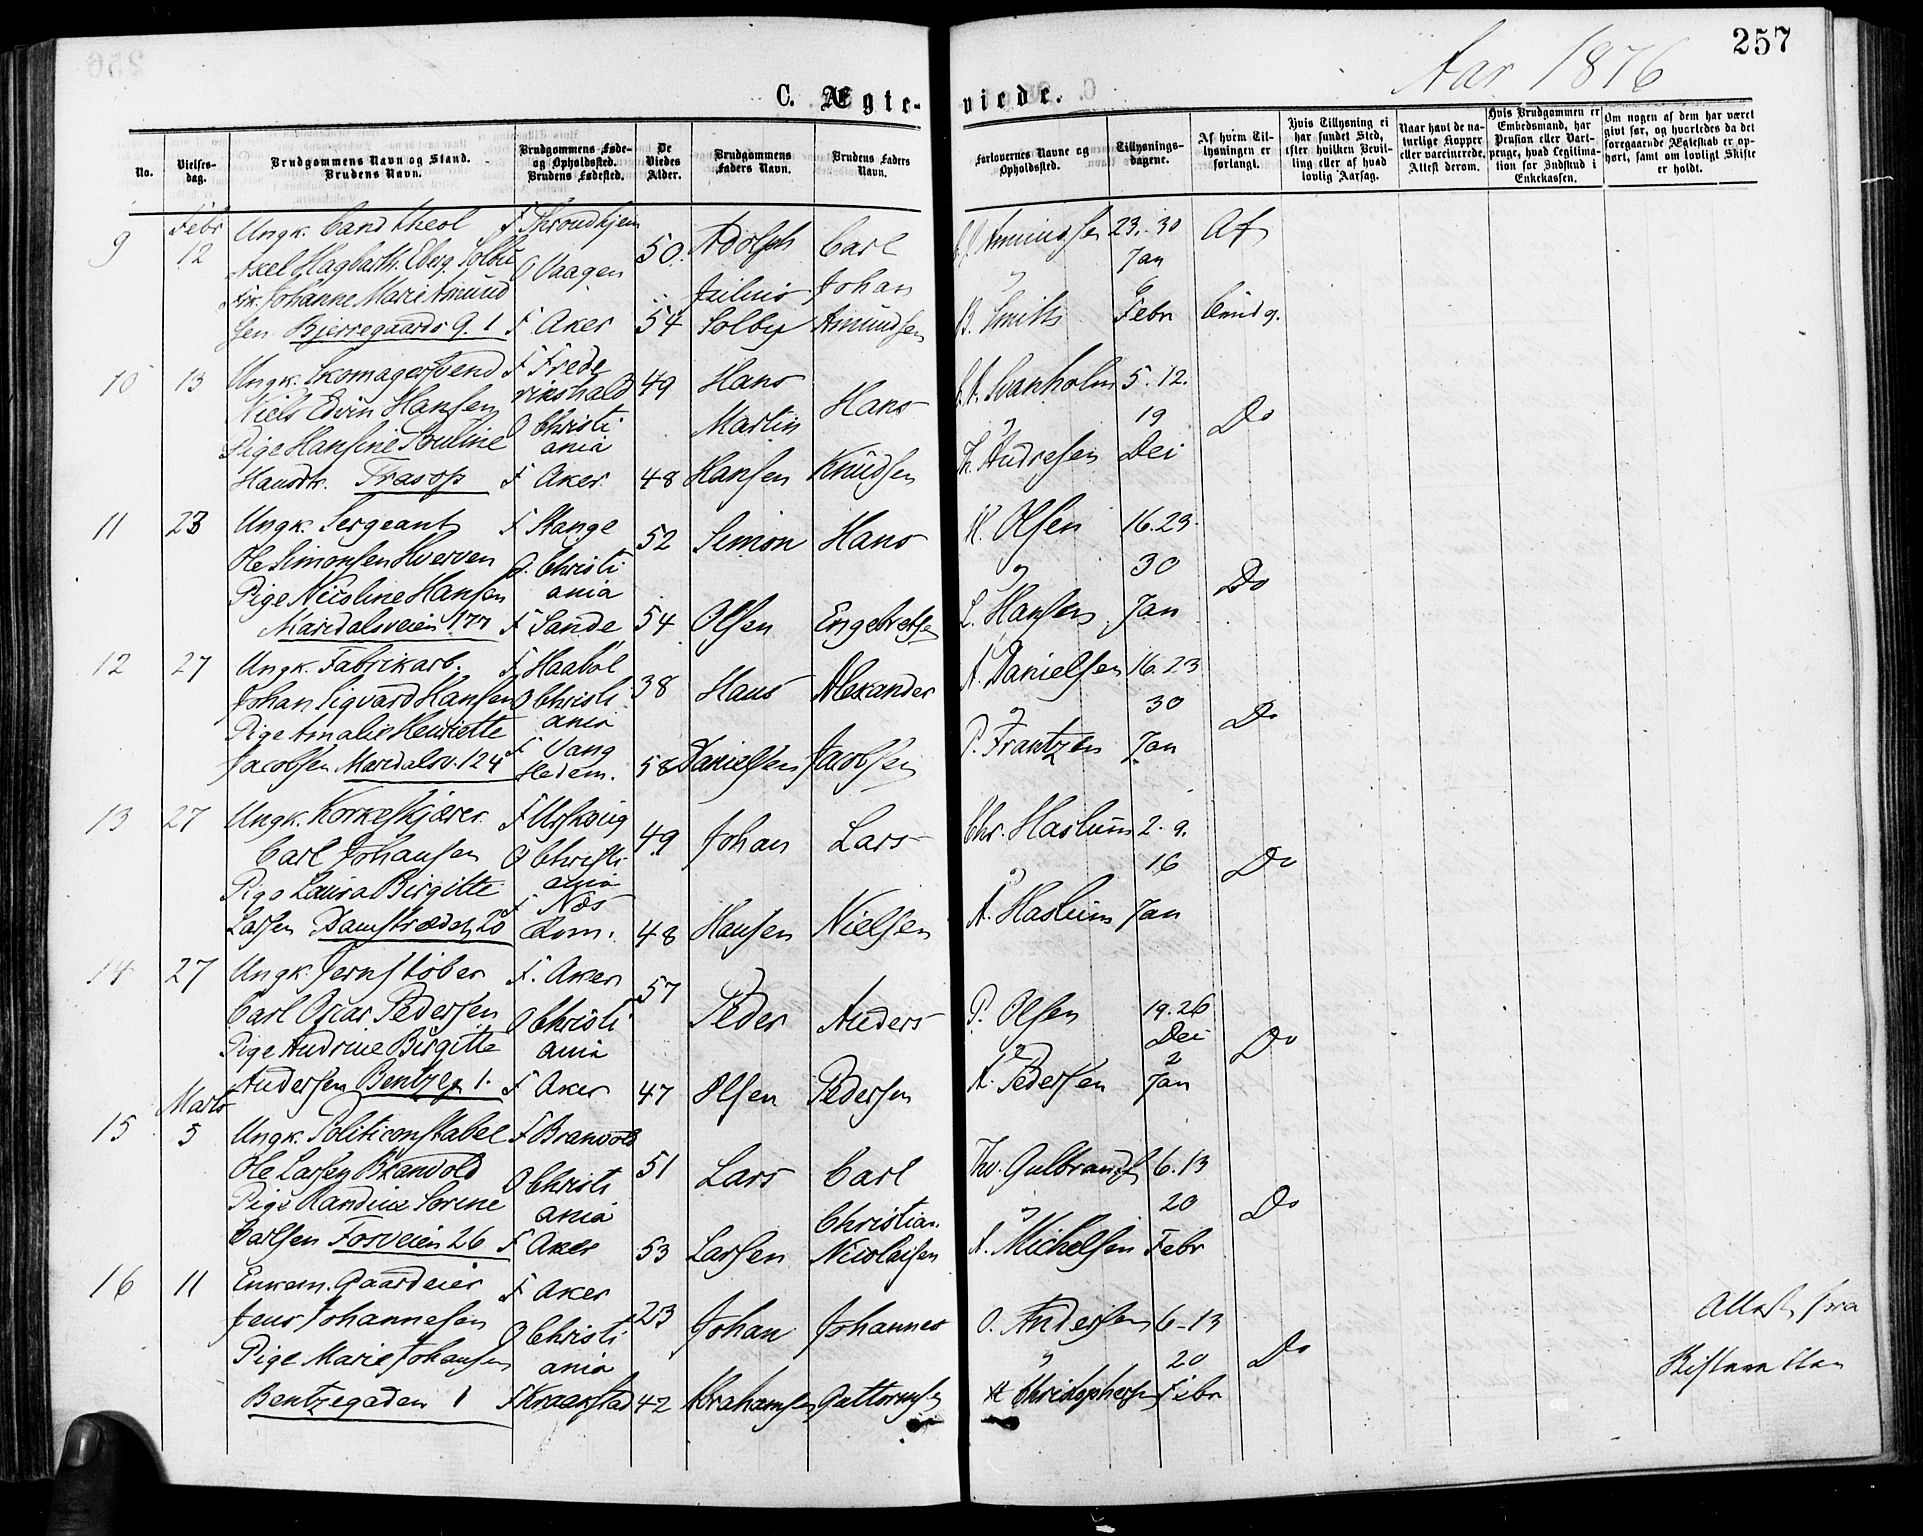 257
Aar 1876
C. Ægte-
viede.
No.
Vielses-
dag.
Brudgommens Navn og Stand.
Brudens Navn.
Brudgommens Føde-
og Opholdssted.
Brudens Fødested.
De
Viedes
Alder.
Brudgommens
Faders Navn.
Brudens Faders
Navn.
Forlovernes Navne og
Opholdssted.
Tillysnings-
dagene.
Af hvem Til-
lysningen er
forlangt.
Hvis Tillysning ei
har fundet Sted,
efter hvilken Bevil-
ling eller af hvad
lovlig Aarsag.
Naar havt de na-
turlige Kopper
eller vaccinerede.
Attest derom.
Hvis Brudgommen er
Embedsmand, har
Pension eller Vart-
penge, hvad Legitima-
tion for Indskud i
Enkekassen.
Om nogen af dem har været
givt før, og hvorledes da det
foregaaende Ægteskab er op-
hørt, samt om lovligt Skifte
er holdt.
9
Febr
12
Ungk. Cand theol
Axel Hagbarth Eberg Solbu
Frk. Johanne Marie Amund
sen Bjerregaards G. 1
F Throndhjem
O Vaagen
F Aker
50
54
Adolph
Julius
Solby
Carl
Johan
Amundsen
Amundsen
B. Smith
23.-30
Jan
6
Febr
Af
Enid g.
10
13
Ungk. Skomagersvend
Niels Edvin Hansen
Pige Hansine Pouline
Hansdtr. Trasop
F Frede
rikshald
O Christi
ania
F Aker
49
48
Hans
Martin
Hansen
Hans
Knudsen
Svanholm
Th. Andresen
5. 12.
19
Dei
Do
11
23
Ungk. Sergeant
Ole Simonsen Hverven
Pige Nicoline Hansen
Maridalsveien 177
F Stange
O. Christi
ania
F Sande
52
54
Simon
Olsen
Hans
Engebretsen
M. Olsen
L. Hansen
16. 23.
30
Jan
Do
12
27
Ungk. Fabrikarb.
Johan Sigvard Hansen
Pige Amalie Henriette
Jacobsen Maridalsv. 124
F Haabøl
O Christi
ania
F Vang
Hedem.
38
58
Hans
Danielsen
Alexander
Jacobsen
A. Danielsen
P. Frantzen
16. 23
30
Jan
Do
13
27
Ungk. Korkeskjærer
Carl Johansen
Pige Laura Birgitte
Larsen Damstrædet 20
F Urskoug
O Christi
ania
F Næs
Rom.
49
48
Johan
Hansen
Lars
Nielsen
Chr. Haslum
A. Haslum
2. 9.
16
Jan
Do
14
27
Ungk. Jernstøber
Carl Oscar Pedersen
Pige Andrine Birgitte
Andersen Bentzeg 1.
F. Aker
O Christi
ania
F Aker
57
47
Peder
Olsen
Anders
Pedersen
P. Olsen
A. Pedersen
19. 26
Dei
2
Jan
Do
15
Marts
5
Ungk. Politiconstabel
Ole Larsen Brandvold
Pige Randine Sorine
Carlsen Fosveien 26
F Branvold
O Christi
ania
F Aker
51
53
Lars
Larsen
Carl
Christian
Nicolaisen
Thv. Gulbrands
A. Michelsen
6. 13
20
Febr
Do
16
11
Enkem. Gaardeier
Jens Johannesen
Pige Marie Johansen
Bentzegaden 1
F Aker
O Christi
ania
F Kraakstad
23
42
Johan
Abrahamsen
Johannes
Guttormsen
O. Andersen
H Christophersen
6-13
20
Febr
Do
Attest fra